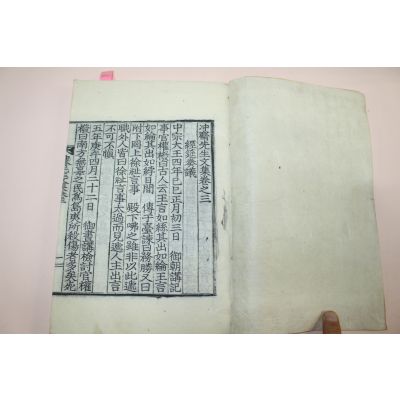 冲齋先生文集卷之三
經筵奏議
中宗大王四年己巳正月初三日 御朝講記
事官權橃曰古人云王言如絲其出如綸王言
如綸其出如綍日聞 傳于臺諫曰終勝又曰
附下罔上徐祉言事 殿下咈之雖非以此遞
職外人皆曰徐祉言事太過而見遞人主出言
不可不愼
五年庚午四月二十二日 御晝講檢討官權
橃曰南方無辜之民爲島夷所殺傷者多矣死